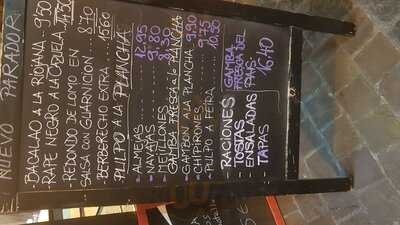 NUEVO PARADOR
- BACALAO A LA RIOJANA - 9'50
- RAPE NEGRO A LA CAZUELA 14'50
- REDONDO DE LOMO EN
SALSA CON GUARNICION ... 8'70
- BERBERECHO EXTRA 15'60
PULPO A LA PLANCHA
- ALMEJAS 12'95
- NAVAJAS 9'80
- MEJILLONES 8'30
GAMBA FRESCA a la PLANCHA
- GAMBON A LA PLANCHA 9'90
- CHIPIRONES 9'75
- PULPO A FEIRA 10'50
- RACIONES
- TOSTAS
- ENSALADAS
- TAPAS
GAMBA
FRESCA DEL
PAIS
16'40